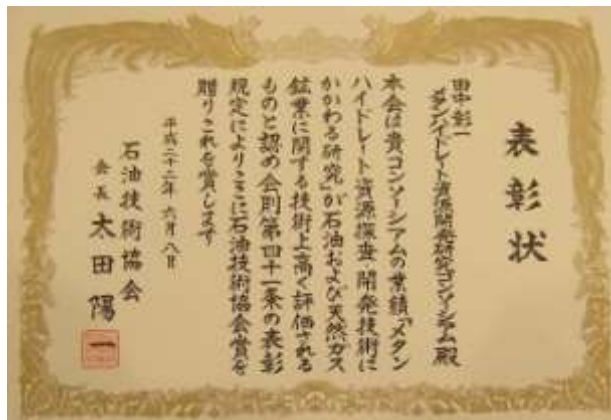 表彰状
田中彰一
メタンハイドレート資源開発研究コンソーシアム殿
本会は貴コンソーシアムの業績「メタン
ハイドレート資源探査・開発技術に
かかわる研究」が石油および天然ガス
鉱業に関する技術上高く評価される
ものと認め会則第四十一条の表彰
規定によりここに石油技術協会賞を
贈りこれを賞します
平成二十二年六月八日
石油技術協会
会長 太田陽一